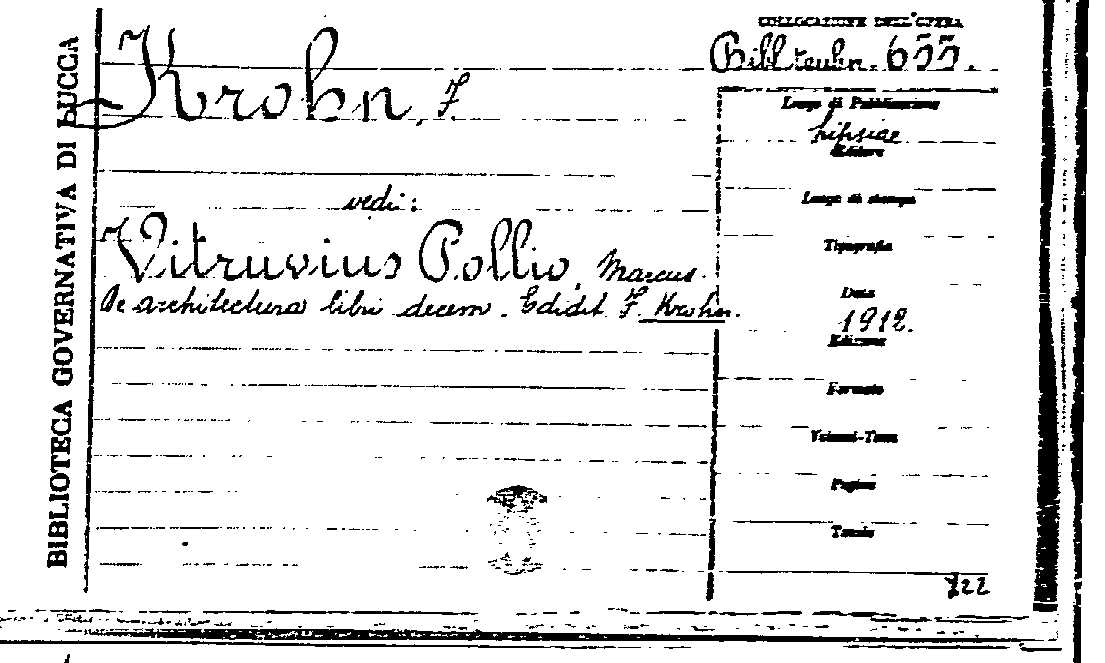 BIBLIOTECA GOVERNATIVA DI LUCCA
Krohn, F.
vedi:
Vitruvius Pollio, Marcus.
De architectura libri decem. Edidit F. Krohn.
COLLOCAZIONE DELL'OPERA
Bibl. teubn. 655.
Luogo di Pubblicazione
Lipsiae
Editore
Luogo di stampa
Tipografia
Data
1912.
Edizione
Formato
Volumi-Tomi
Pagine
Tavole
722